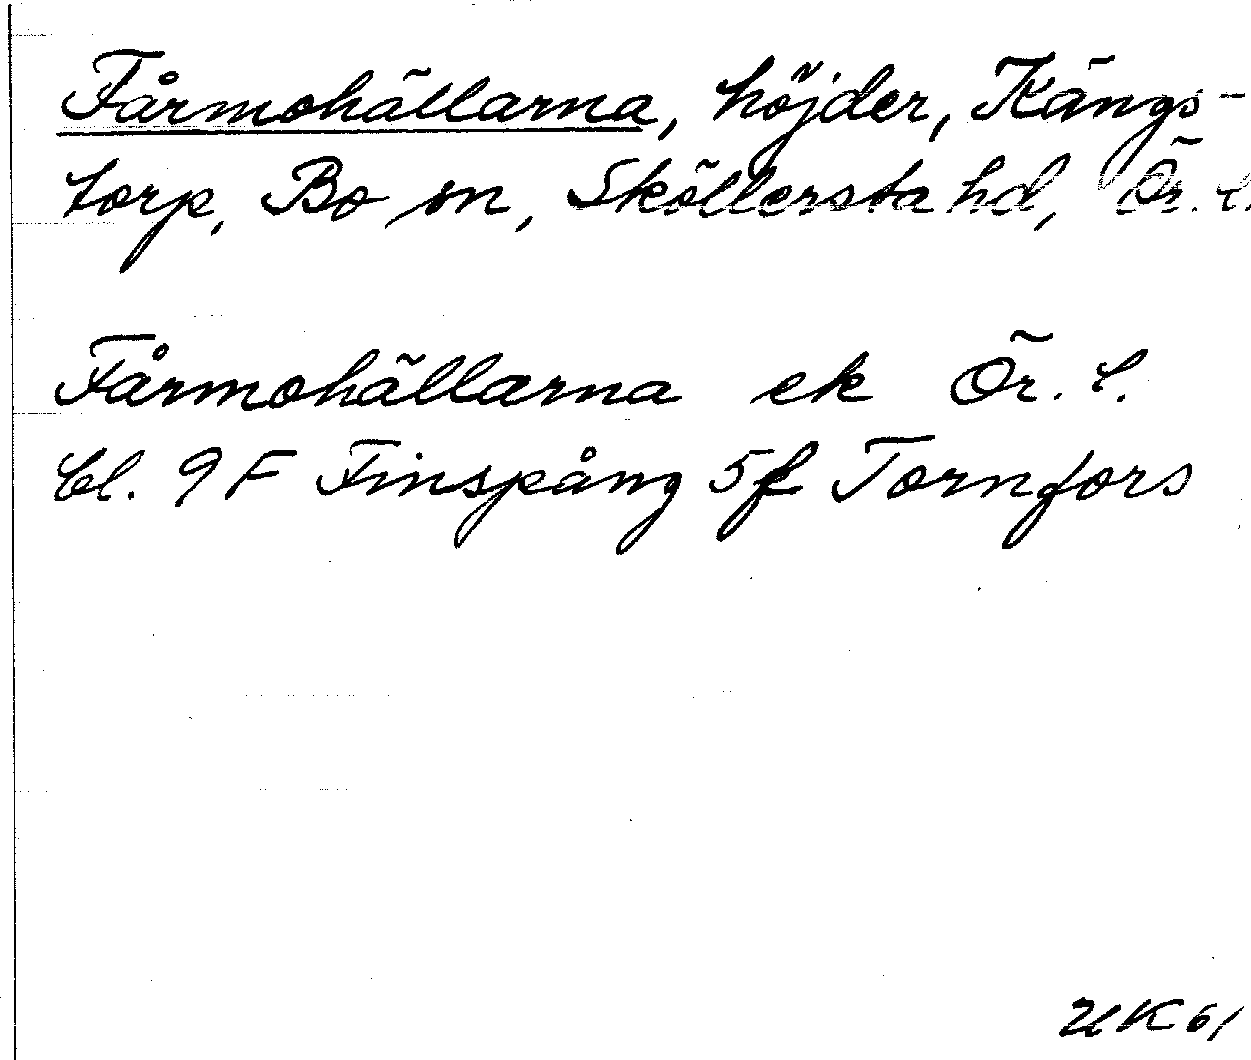 Fårmohällarna, höjder, Kängs-
torp, Bo sn, Sköllersta hd, Ör. l.
Fårmohällarna ek Ör. l.
bl. 9F Finspång 5f Tornfors
UK 61